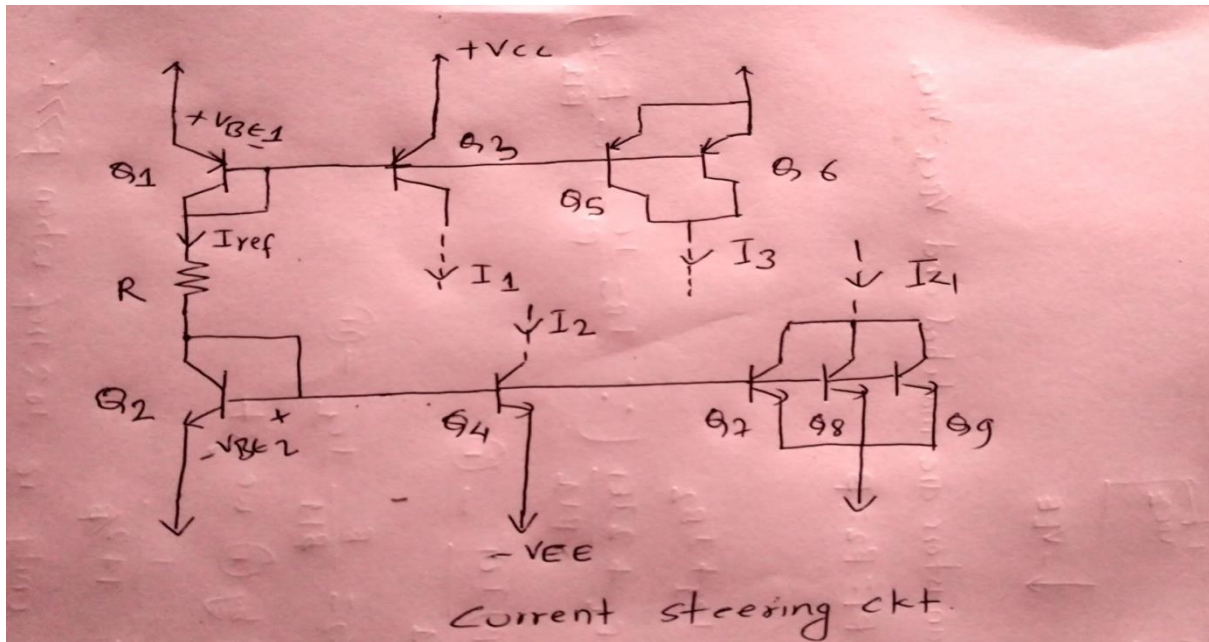 +VCC
+VBE1
-
Q1
Q3
Q5
Q6
Iref
R
I1
I2
I3
I4
Q2
+
-VBE2
Q4
Q7
Q8
Q9
-VEE
Current steering ckt.